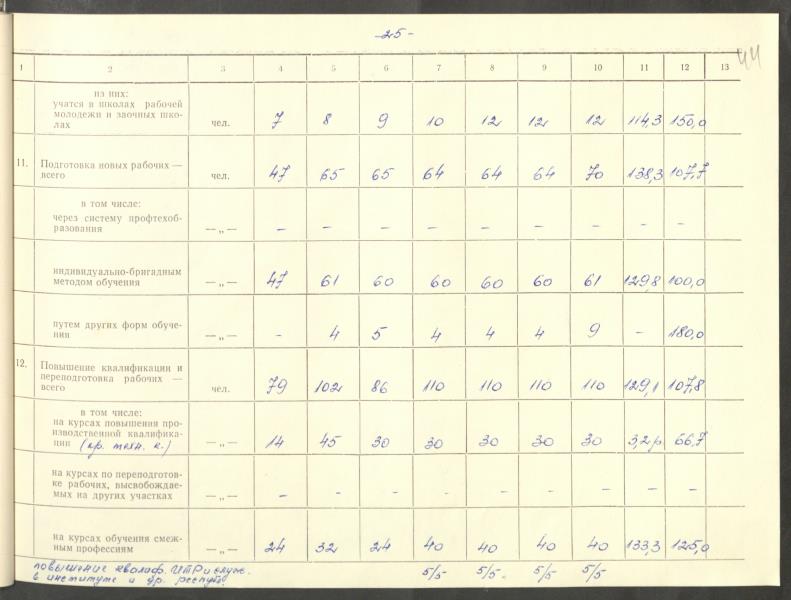 -25-
44
1 2 3 4 5 6 7 8 9 10 11 12 13
из них:
учатся в школах рабочей
молодежи и заочных шко-
лах чел. 7 8 9 10 12 12 12 114,3 150,0
11. Подготовка новых рабочих —
всего чел. 47 65 65 64 64 64 70 138,3 107,7
в том числе:
через систему профтехоб-
разования —„— – – – – – – – – –
индивидуально-бригадным
методом обучения —„— 47 61 60 60 60 60 61 129,8 100,0
путем других форм обуче-
ния —„— – 4 5 4 4 4 9 – 180,0
12. Повышение квалификации и
переподготовка рабочих —
всего чел. 79 102 86 110 110 110 110 129,1 107,8
в том числе:
на курсах повышения про-
изводственной квалифика-
ции (пр. техн. к.) —„— 14 45 30 30 30 30 30 3,2р 66,7
на курсах по переподготов-
ке рабочих, высвобождае-
мых на других участках —„— – – – – – – – – –
на курсах обучения смеж-
ным профессиям —„— 24 32 24 40 40 40 40 133,3 125,0
повышение квалиф. ИТР и служ. 5/5 5/5 5/5 5/5
в институте и др. респуб.